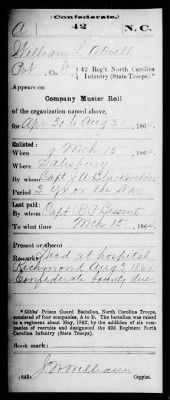 (Confederate.)
A 42 N.C.
William L. Atwell
Pvt, Co. 42 Reg't North Carolina Infantry (State Troops).*
Appears on
Company Muster Roll
of the organization named above,
for Apr 30 to Aug 31, 1864.
Enlisted:
When Mch 15, 1864
Where Salisbury
By whom Capt J. A.
Period 3 yrs or the War
Last paid:
By whom Capt B. F. Bessent
To what time Mch 15, 1864
Present or absent
Remarks: Died at hospital
Richmond Aug 1864
Confederate bounty due
*Gibbs' Prison Guard Battalion, North Carolina Troops,
consisted of four companies, A to D. The battalion was raised
to a regiment about May, 1862, by the addition of six com-
panies of recruits and designated the 42d Regiment North
Carolina Infantry (State Troops).
Book mark:
J W William
(642) Copyist.